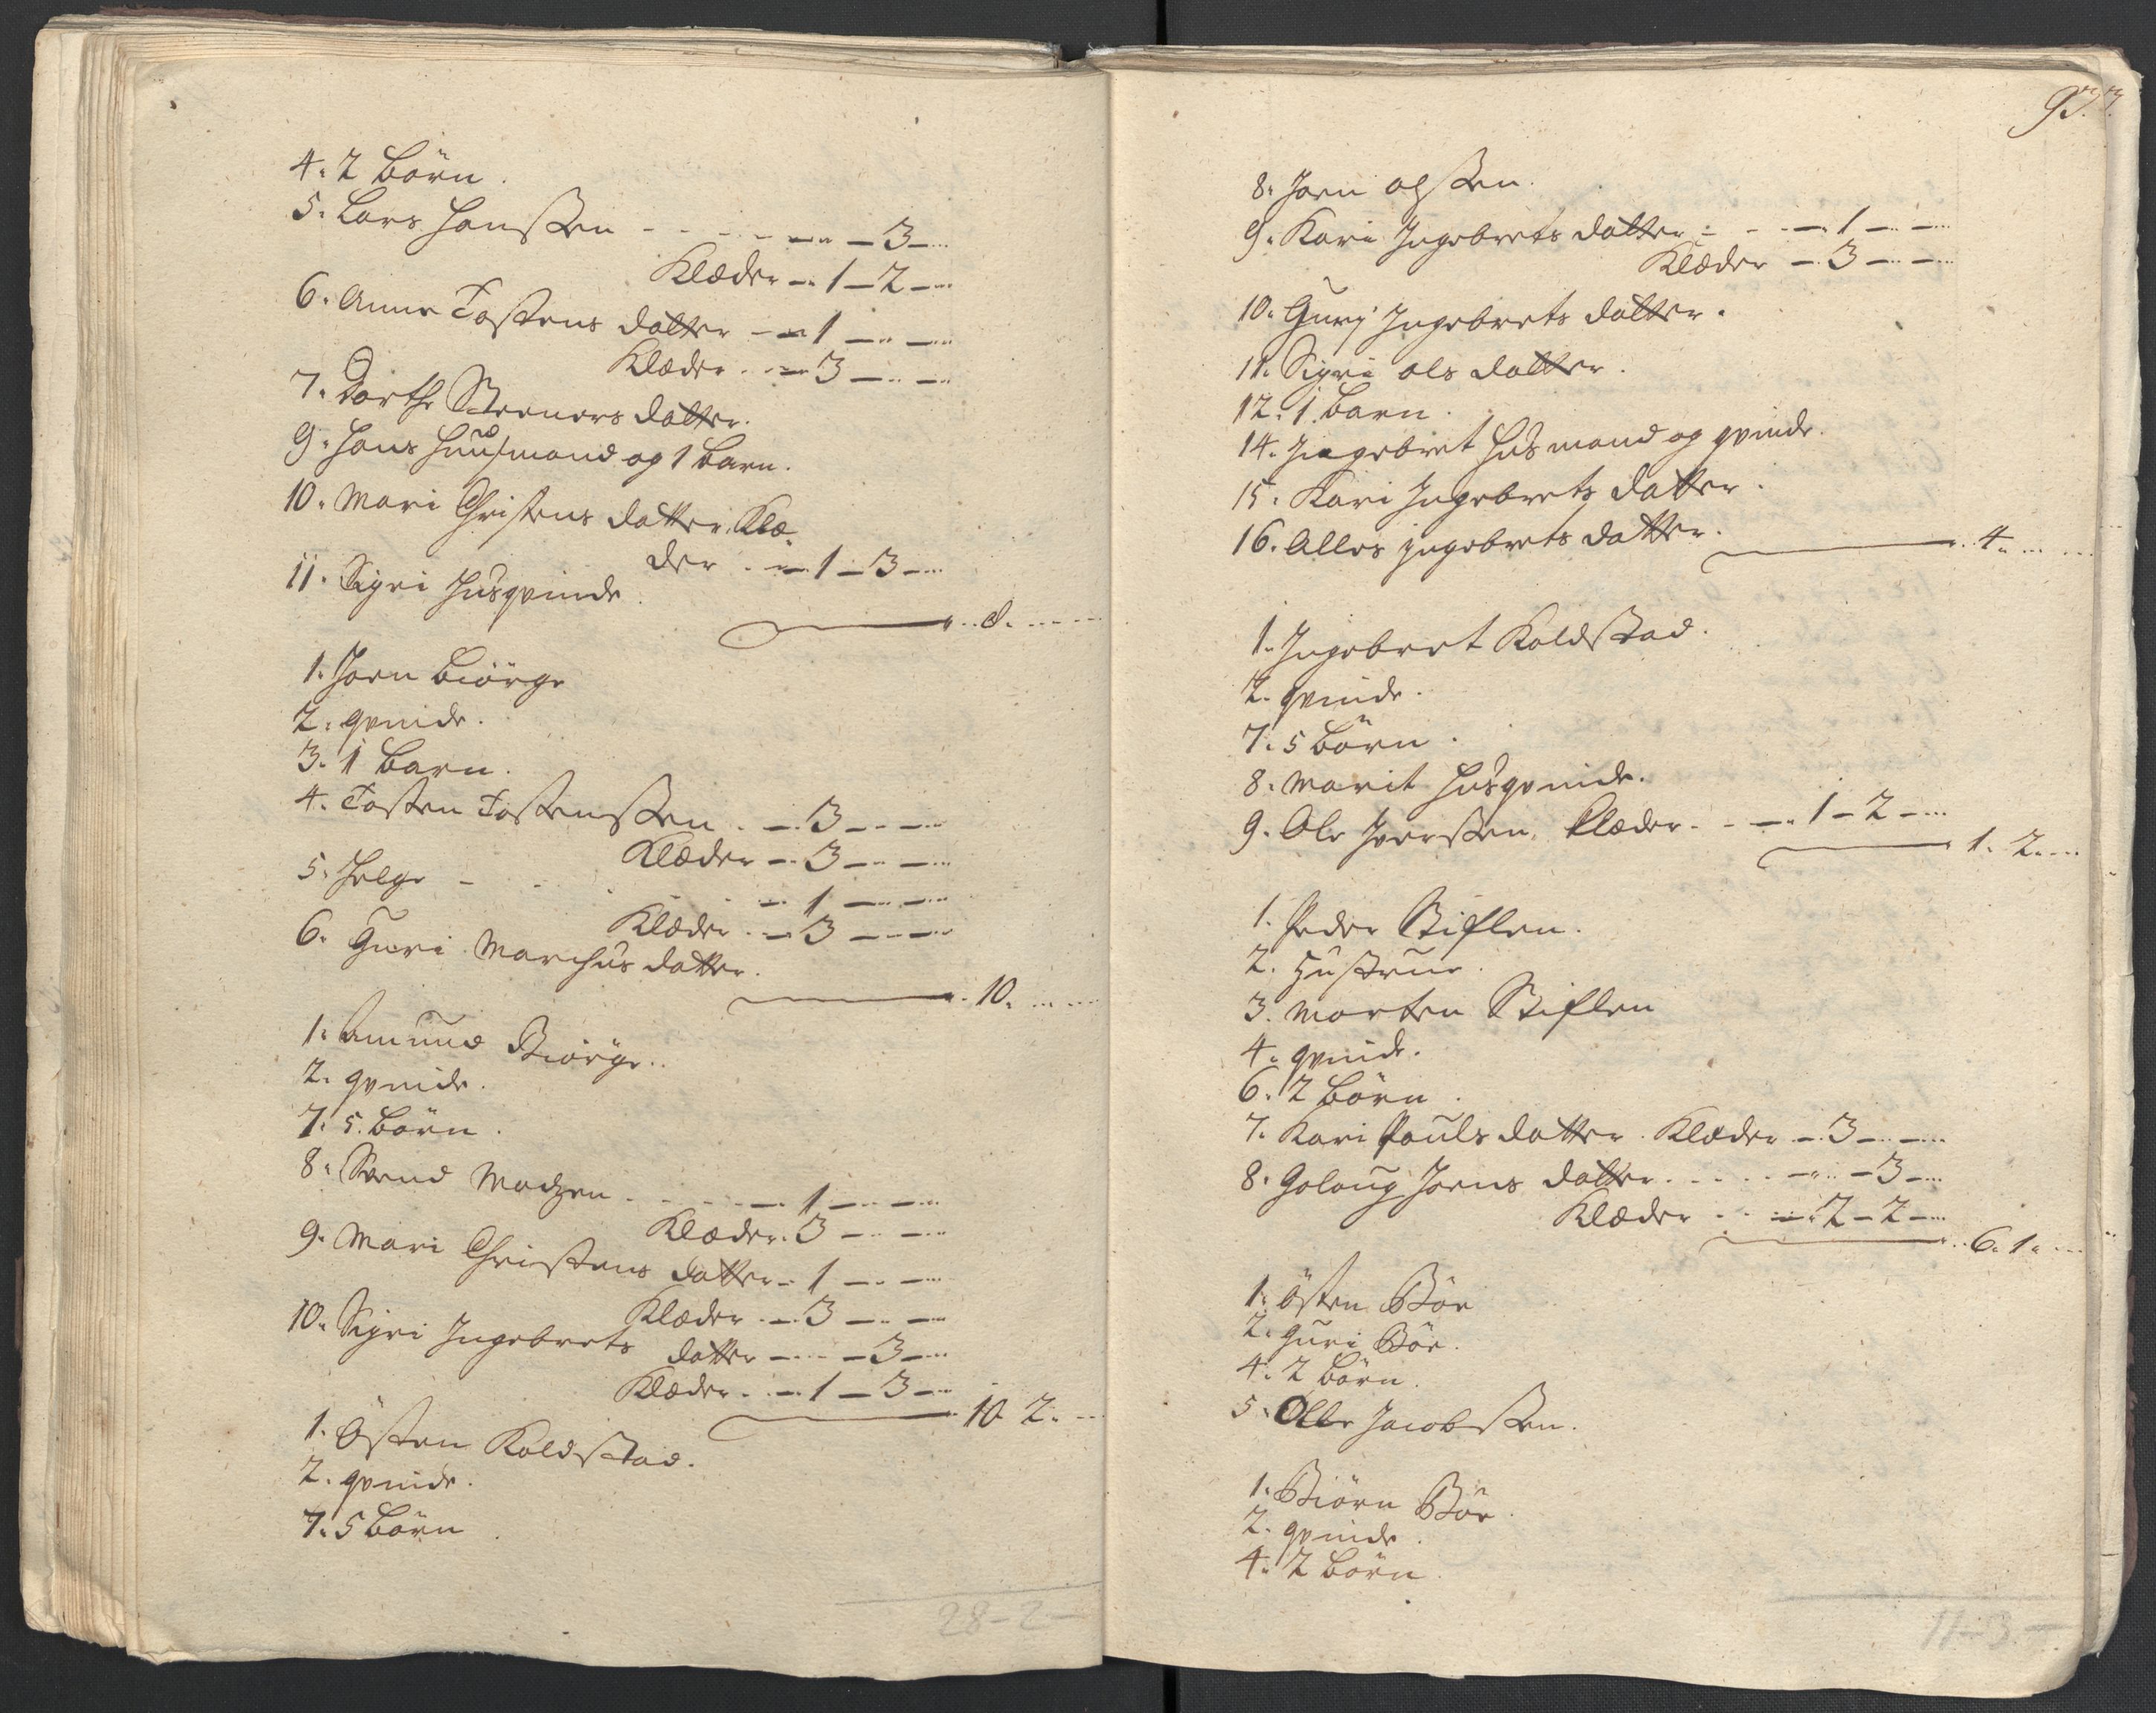 4. 2 Börn.
5. Lars Hanssen - - - - - 3 -
Klæder - 1 - 2 -
6. Anne Tostens datter - 1 - -
Klæder - 3 - -
7. Dorthe datter.
9. Hans Huusmand og 1 barn.
10. Mari Christens datter, Klæ-
der - 1 - 3 -
11. Sigri Husqvinde.
8.
1. Joen Biörge
2. qvinde.
3. 1 Barn.
4. Tosten Tostenssen - 3 - -
Klæder - 3 - -
5. Helge - - 1 - -
Klæder - 3 - -
6. Guri Marchus datter.
10.
1. Amund Biörge.
2. qvinde.
7. 5. Börn.
8. Svend Madzen - - - 1 - -
Klæder. 3 - -
9. Mari Christens datter - 1 - -
Klæder - 3 - -
10. Sigri Ingebrets datter - - 3 -
Klæder - 1 - 3 -
10 2.
1. Östen Koldstad.
2. qvinde.
7. 5 Börn.
28-2-
93.
8. Joen olssen.
9. Kari Ingebrets datter - - 1 - -
Klæder - 3 - -
10. Gurj Ingebrets datter.
11. Sigri ols datter.
12. 1. barn.
14. Ingebret Husmand og qvinde.
15. Kari Ingebrets datter.
16. Alles Ingebrets datter.
4.
1. Ingebret Koldstad.
2. qvinde.
7. 5 börn.
8. Marit Husqvinde.
9. Ole Iverssen, Klæder - - 1 - 2 -
1. 2.
1. Peder Stiflen.
2. Hustrue.
3. Morten Stiflen
4. qvinde.
6. 2 börn.
7. Kari Pouls datter. Klæder - 3 - -
8. Golaug Joens datter - - - - 3 -
Klæder - - 2 - 2 -
6. 1.
1. Östen Böe
2. Guri Böe.
4. 2 börn.
5. Olle Jacobssen.
1. Biörn Böe.
2. qvinde.
4. 2 börn.
11-3-